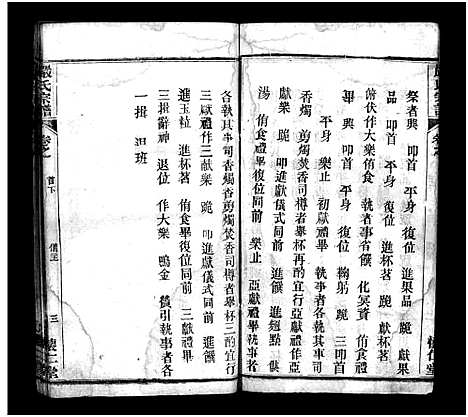 嚴氏宗譜
祭者興 叩首 平身 復位 進果品 跪 獻果
品 叩首 平身 復位 進杯茗 跪 獻杯茗
俯伏作大樂侑食 執者事省饌 化冥資 侑食禮
畢 叩首 平身 復位 鞠躬 跪 三叩首
平身 樂止 初獻禮畢
香燭剪燭焚香司樽者舉杯再酌宜行亞獻禮作
亞獻樂 跪 叩首 進獻儀式同前 進麵點 供
湯 侑食禮畢復位同前 樂止 亞獻禮畢執事者
各執其事司香燭者剪燭焚香司樽者舉杯三酌宜行
三獻禮作三獻樂 跪 叩進獻儀式同前 進饌
進玉粒 進杯茗 侑食畢復位同前 三獻禮畢
三揖辭神 退位 作大樂 鳴金 贊引執事者各
一揖 退班
嚴氏宗譜
卷之
首下
三
懷仁堂